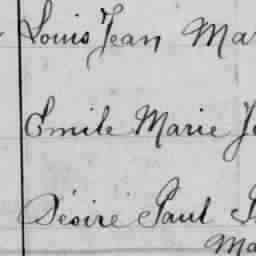 Louis Jean Ma
Emile Marie Je
Désiré Paul
Ma